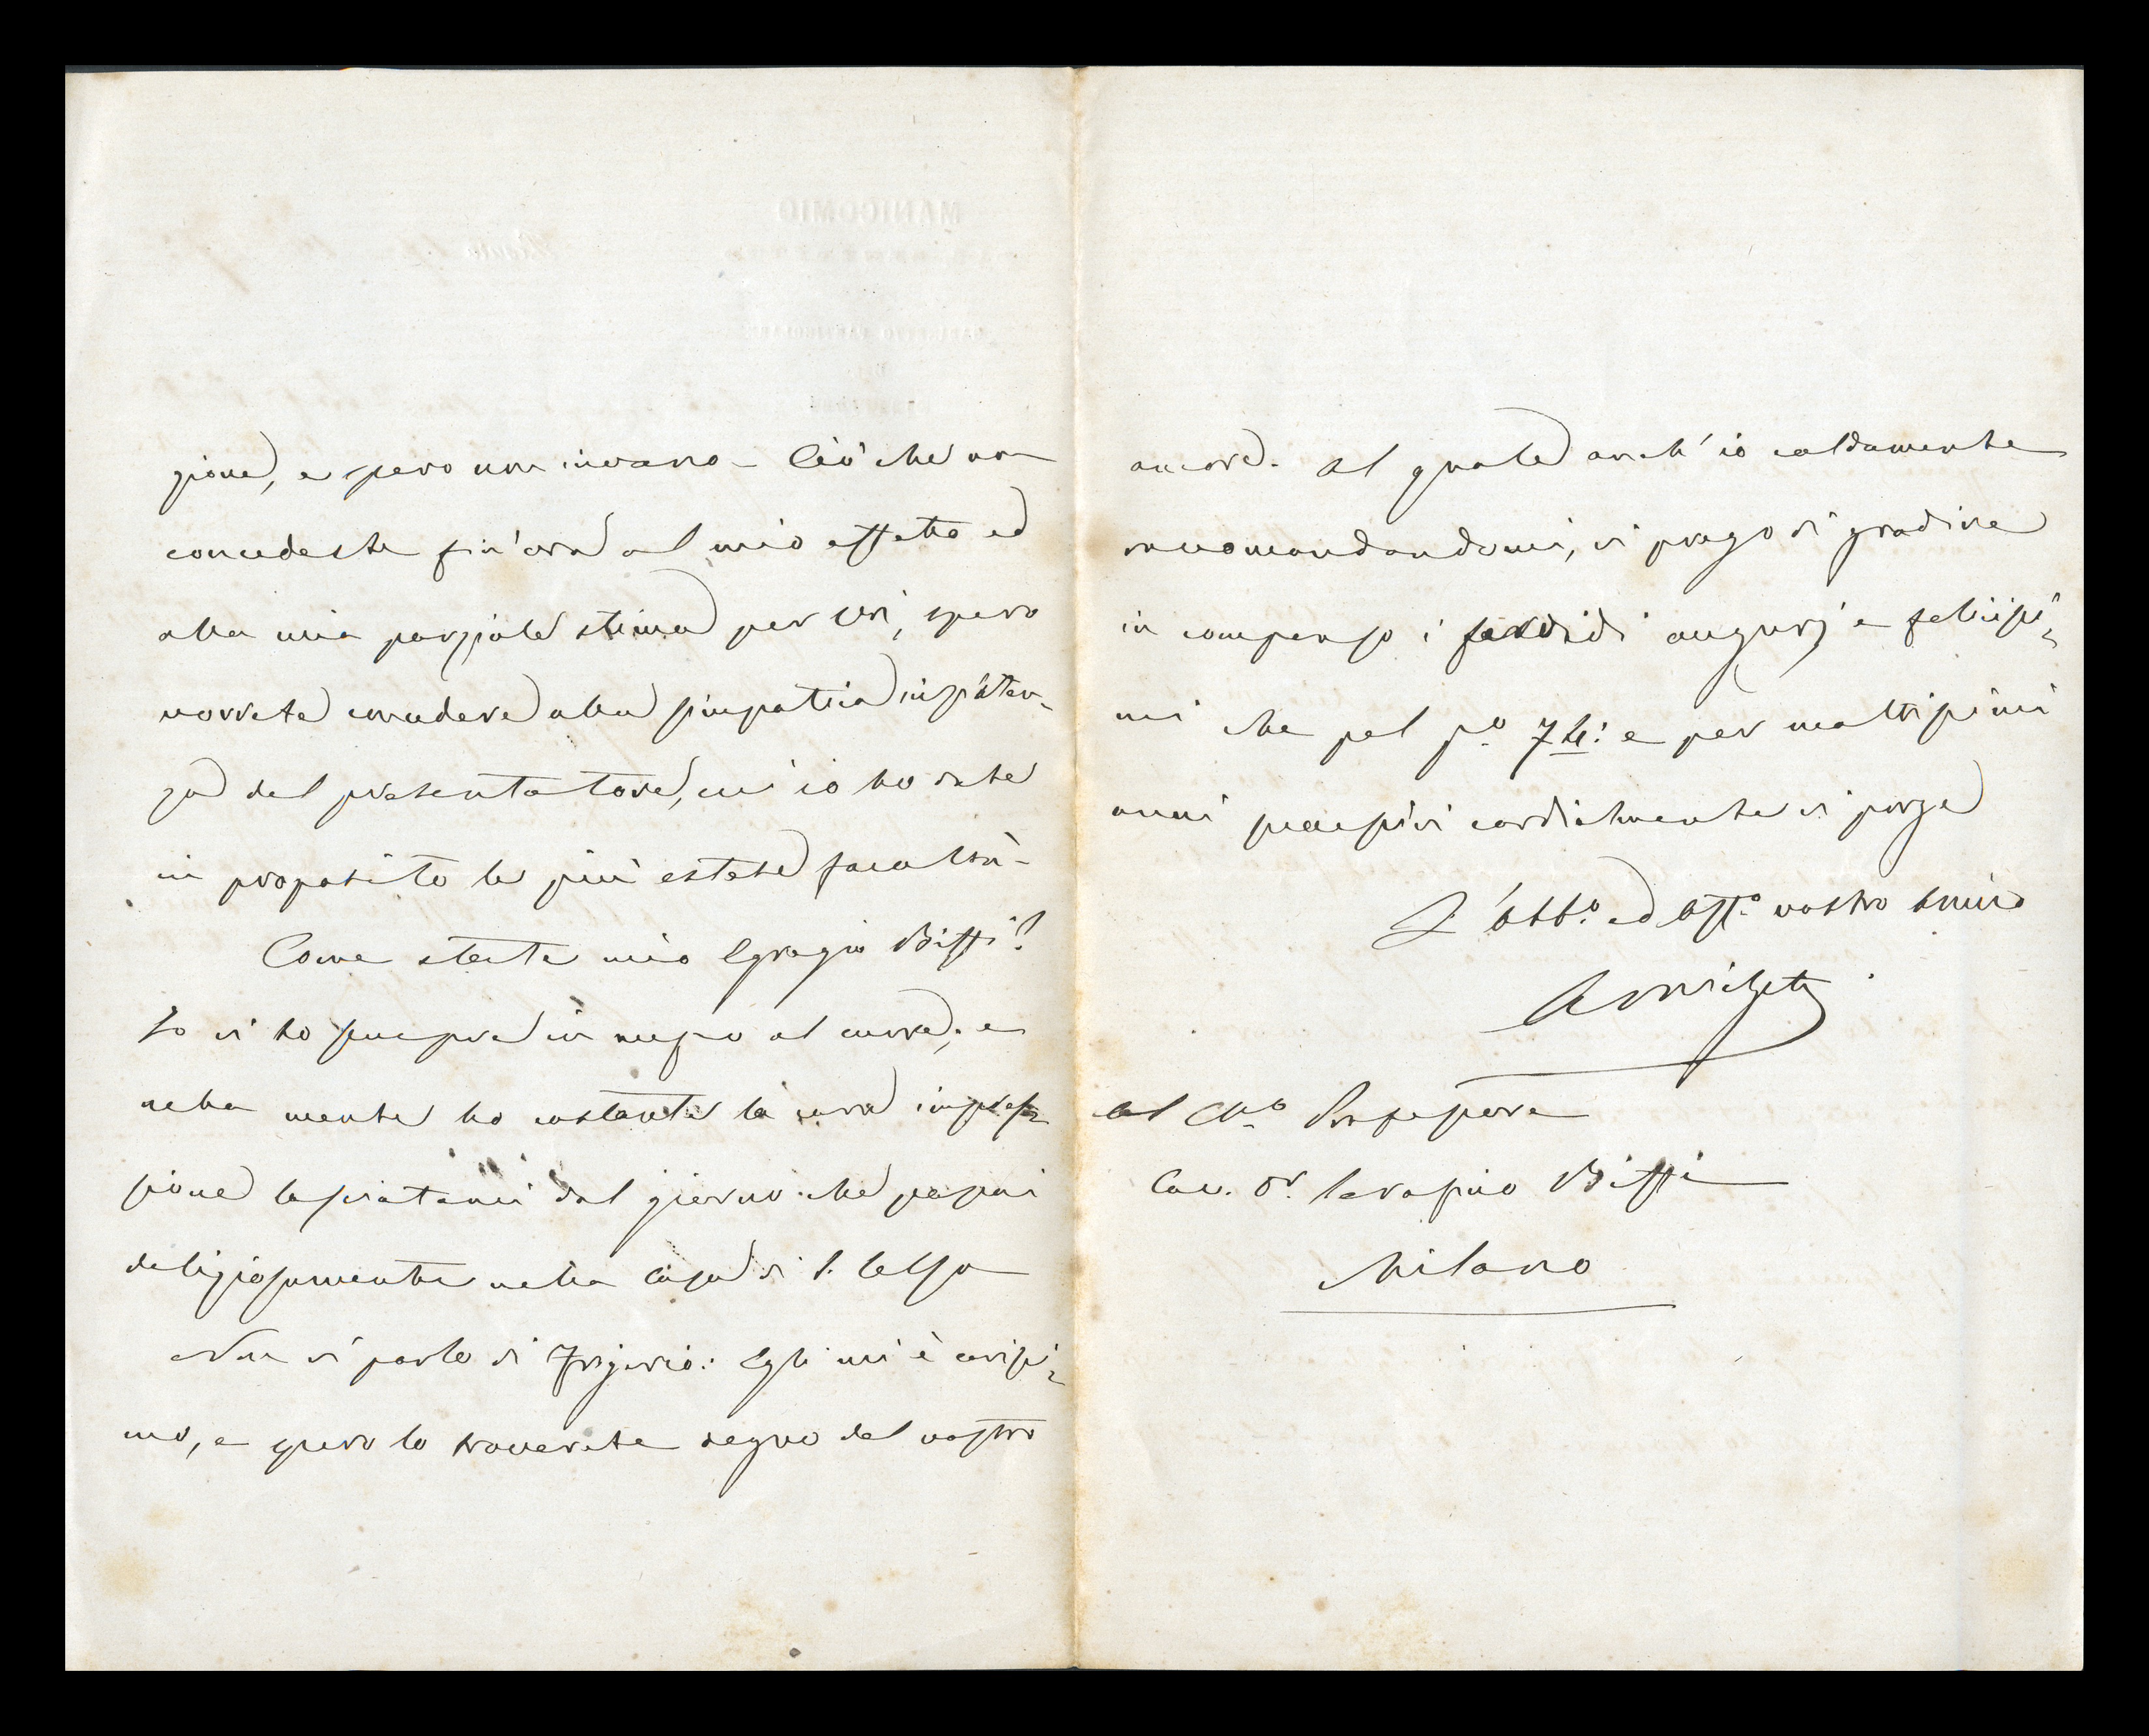 gione, e spero non invano – Ciò che non
concedeste fin'ora al mio affetto ed
alla mia parziale stima per Voi, spero
vorrete concedere alla simpatica insisten-
za del presentatore, cui io ho date
in proposito le più estese facoltà –
Come state mio Egregio Biffi?
Io vi ho sempre in mezzo al cuore; e
nella mente ho costante la cara impres-
sione lasciatami dal giorno che passai
deliziosamente nella Casa di S. Celso
Non vi parlo di Frigerio: Egli mi è carissi-
mo, e spero lo troverete degno del vostro
amore. Al quale anch'io caldamente
raccomandandomi, vi prego di gradire
in compenso i fervidi augurj e felicissi-
mi che pel po. 74: e per moltissimi
anni successivi cordialmente vi porge
L'obbo. ed affo. vostro amico
Al Cho. Professore
Cav. Dr. Serafino Biffi
Milano
MANICOMIO